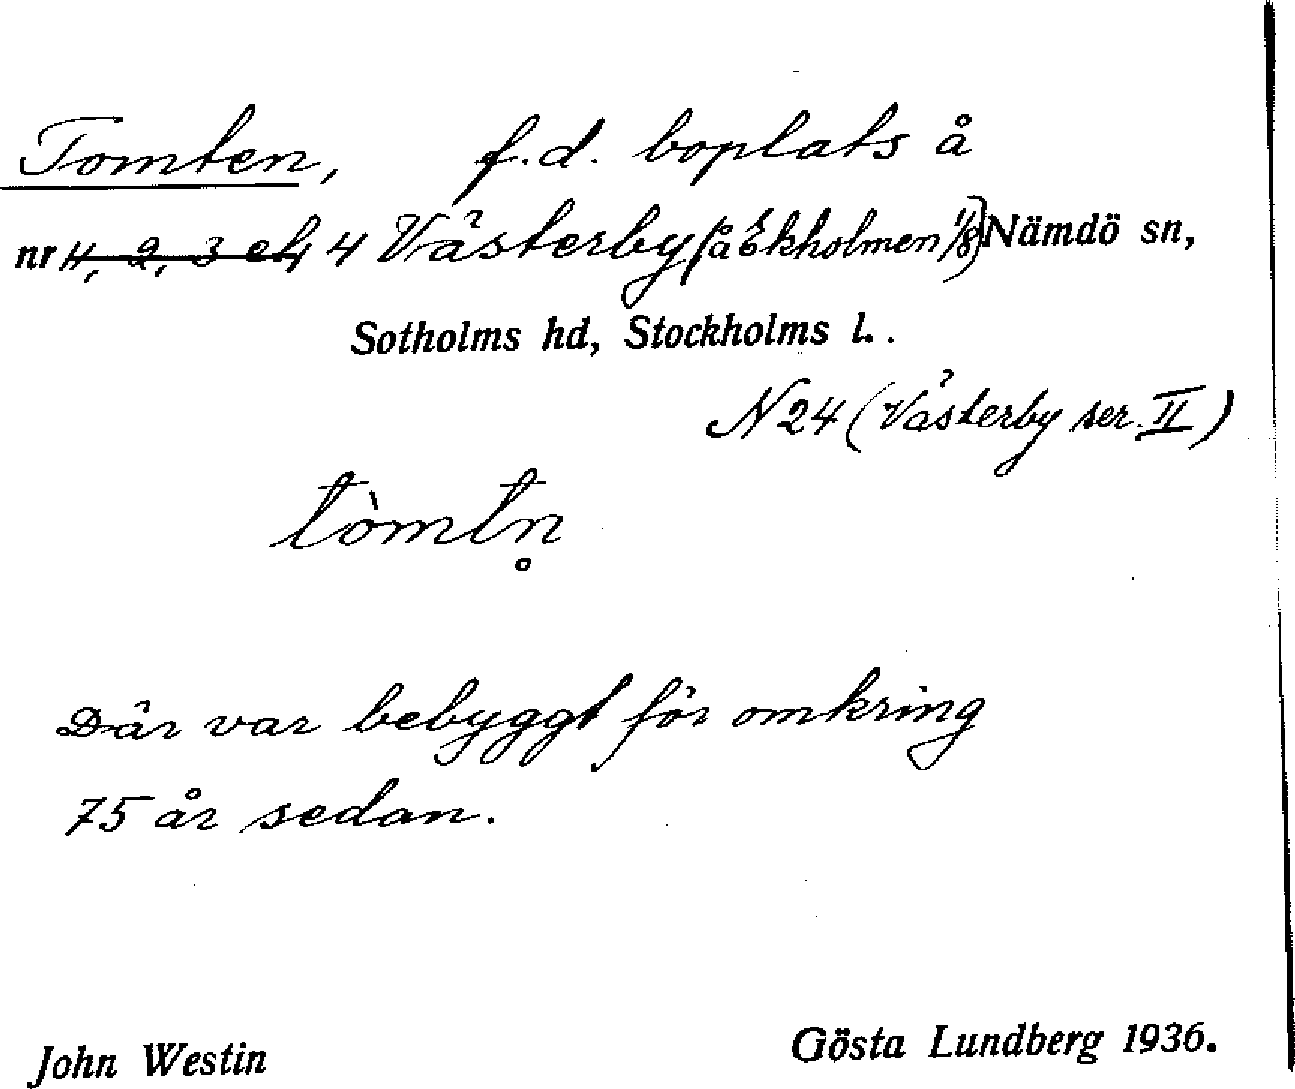 Tomten, f.d. boplats å
nr 1, 2, 3 el. 4 Västerby (å Ekholmen 1/8) Nämdö sn,
Sotholms hd, Stockholms l..
N 24 (Västerby ser. II)
tòmtn̥
Där var bebyggt för omkring
75 år sedan.
John Westin Gösta Lundberg 1936.